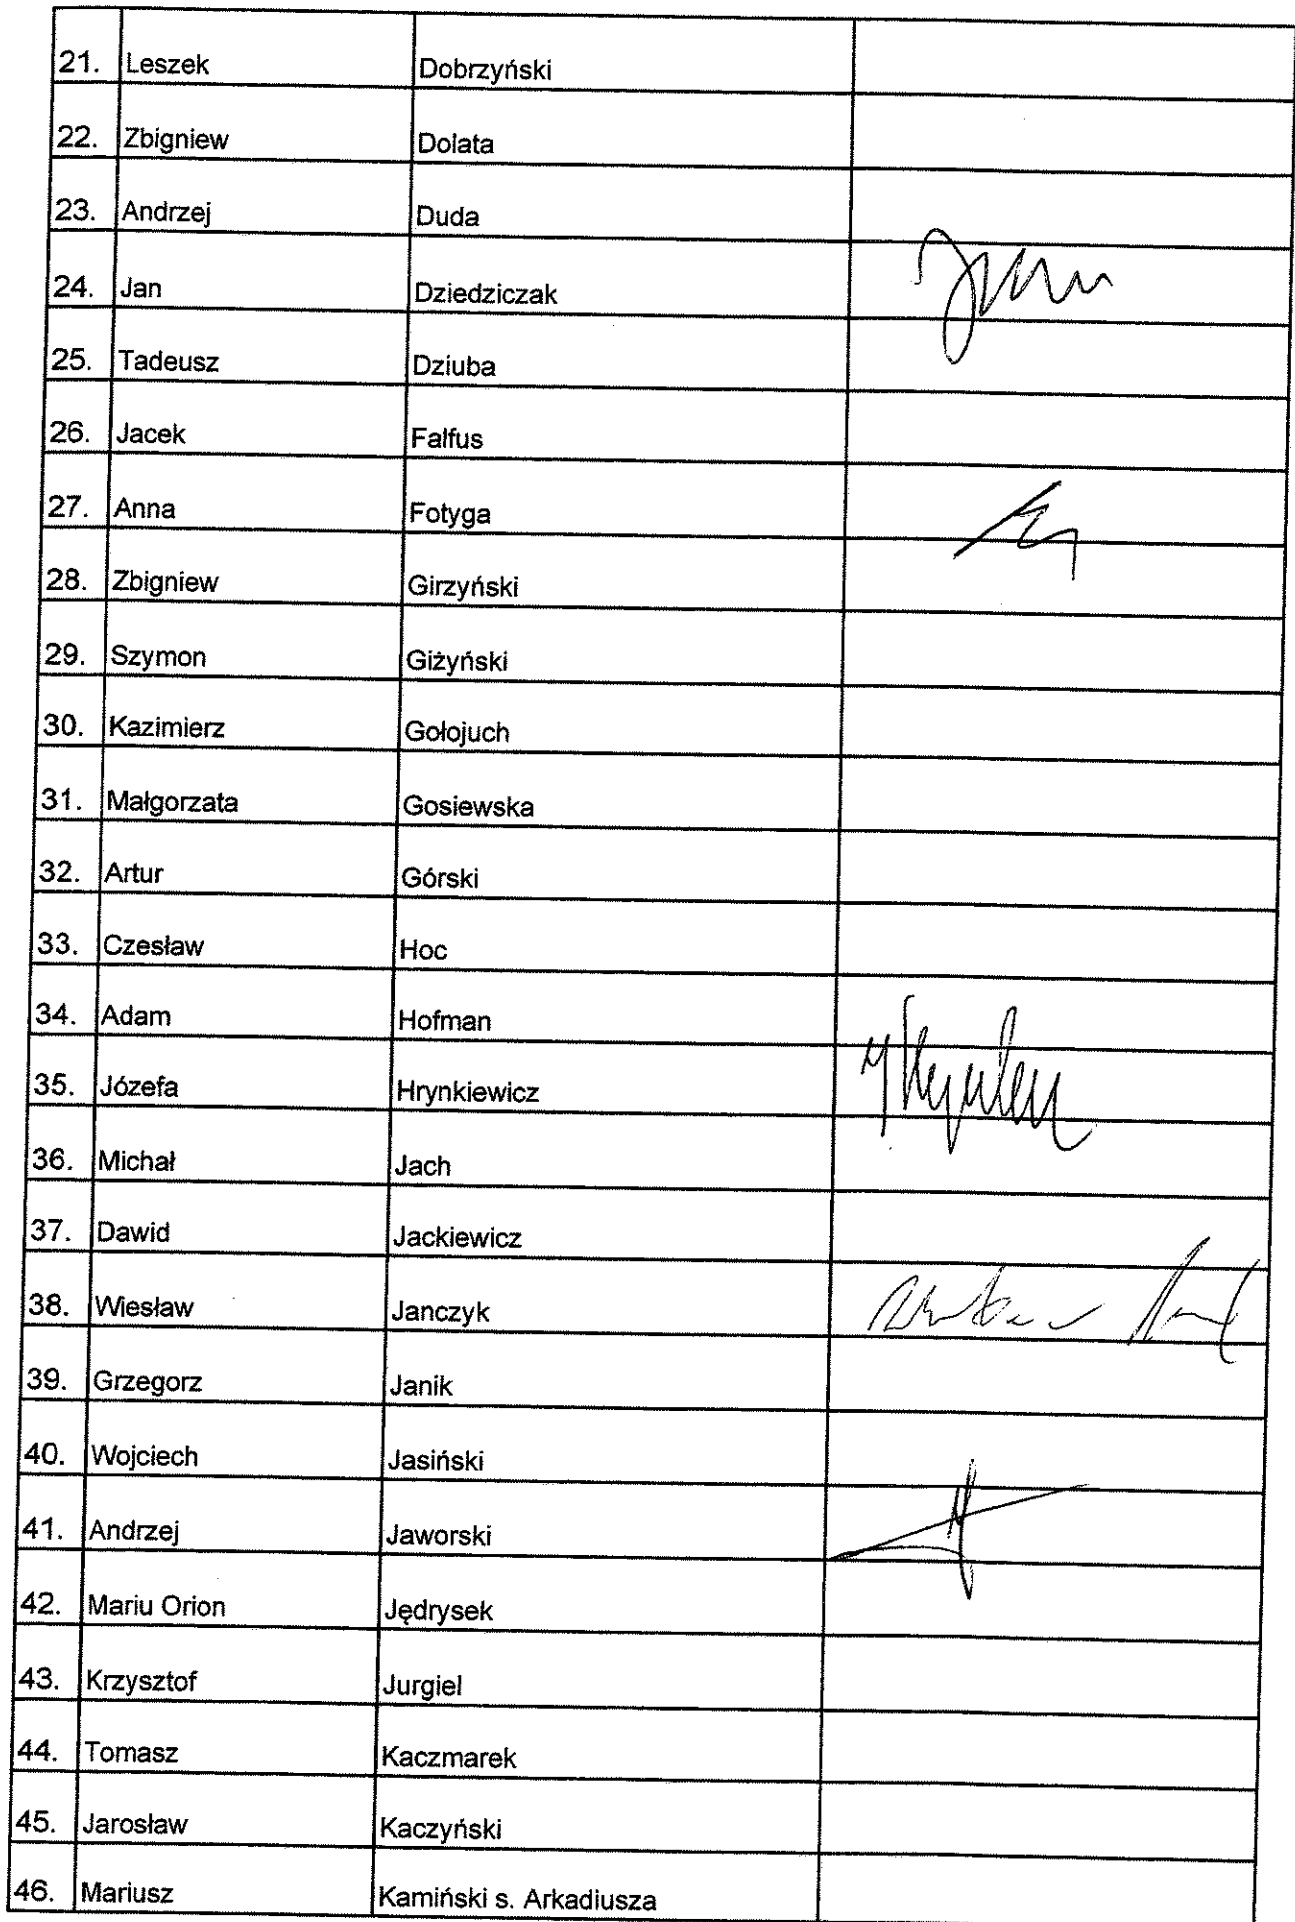 21. Leszek Dobrzyński
22. Zbigniew Dolata
23. Andrzej Duda
24. Jan Dziedziczak
25. Tadeusz Dziuba
26. Jacek Falfus
27. Anna Fotyga
28. Zbigniew Girzyński
29. Szymon Giżyński
30. Kazimierz Gołojuch
31. Małgorzata Gosiewska
32. Artur Górski
33. Czesław Hoc
34. Adam Hofman
35. Józefa Hrynkiewicz
36. Michał Jach
37. Dawid Jackiewicz
38. Wiesław Janczyk
39. Grzegorz Janik
40. Wojciech Jasiński
41. Andrzej Jaworski
42. Mariu Orion Jędrysek
43. Krzysztof Jurgiel
44. Tomasz Kaczmarek
45. Jarosław Kaczyński
46. Mariusz Kamiński s. Arkadiusza